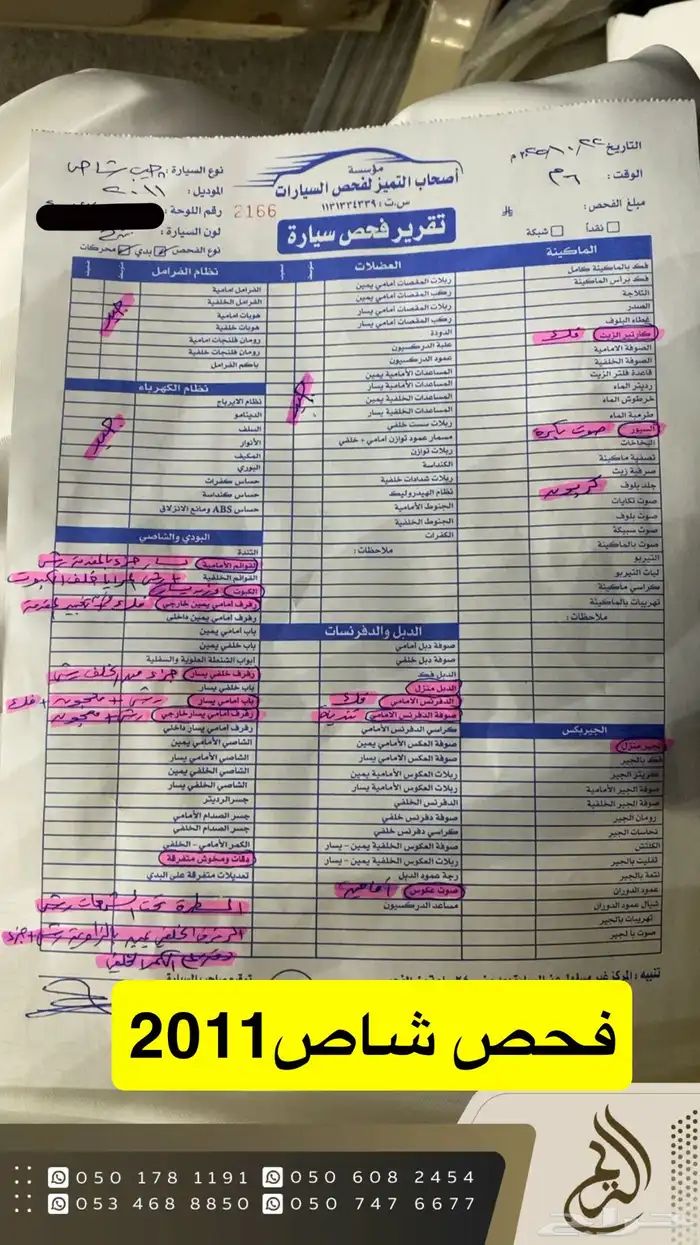 التاريخ
الوقت:
مبلغ الفحص:
نقداً
شبكة
مؤسسة
أصحاب التميز لفحص السيارات
س.ت: ١١٣١٣٣٤٣٣٩
تقرير فحص سيارة
نوع السيارة: جيب شاص
الموديل: ٢٠١١
رقم اللوحة:
2166
لون السيارة:
نوع الفحص: بدي محركات
الماكينة
فك بالماكينة كامل
فك برأس الماكينة
الثلاجة
الصدر
غطاء البلوف
كارتير الزيت فك
الصوفة الامامية
الصوفة الخلفية
قاعدة فلتر الزيت
رديتر الماء
خرطوش الماء
طرمبة الماء
السيور صوت بكره
البخاخات
تصفية ماكينة
صرفية زيت
جلد بلوف
صوت تكايات
صوت بلوف
صوت سبيكة
صوت بالماكينة
التيربو
لبات التيربو
كراسي ماكينة
تهريبات بالماكينة
ملاحظات:
الجيربكس
الجير منزل
فك بالجير
كريتر الجير
صوفة الجير الأمامية
صوفة الجير الخلفية
رومان الجير
نحاسات الجير
الكلتش
تفليت بالجير
نتعة بالجير
عمود الدوران
شيال عمود الدوران
تهريبات بالجير
صوت بالجير
العضلات
ربلات المقصات أمامي يمين
ركب المقصات أمامي يمين
ربلات المقصات أمامي يسار
ركب المقصات أمامي يسار
الدودة
علبة الدركسيون
عمود الدركسيون
المساعدات الأمامية يمين
المساعدات الأمامية يسار
المساعدات الخلفية يمين
المساعدات الخلفية يسار
جيد
ربلات سست خلفي
مسمار عمود توازن امامي + خلفي
ربلات توازن
الكنداسة
ربلات شدادات خلفية
نظام الهيدروليك
الجنوط الأمامية
الجنوط الخلفية
الكفرات
ملاحظات:
الدبل والدفرنسات
صوفة دبل أمامي
صوفة دبل خلفي
الدبل فك
الدبل منزل
الدفرنس الامامي فك
صوفة الدفرنس الامامي
كراسي الدفرنس الأمامي
صوفة العكس الأمامي يمين
صوفة العكس الامامي يسار
ربلات العكوس الأمامية يمين
ربلات العكوس الأمامية يسار
الدفرنس الخلفي
صوفة دفرنس خلفي
كراسي دفرنس خلفي
صوفة العكوس الخلفي يمين - يسار
ربلات العكوس الخلفية يمين - يسار
رجة عمود الدبل
صوت عكوس
مساعد الدركسيون
نظام الفرامل
الفرامل امامية
الفرامل الخلفية
هوبات امامية
هوبات خلفية
جيد
رومان فلنجات امامية
رومان فلنجات خلفية
باكم الفرامل
نظام الكهرباء
نظام الايرباج
الدينامو
السلف
الأنوار
جيد
المكيف
البوري
حساس كفرات
حساس كنداسة
حساس ABS ومانع الانزلاق
البودي والشاصي
التندة
القوائم الأمامية
القوائم الخلفية
الكبوت
رفرف امامي يمين خارجي
رفرف امامي يمين داخلي
باب امامي يمين
باب خلفي يمين
ابواب الشنطة العلوية والسفلية
رفرف خلفي يسار
باب خلفي يسار
باب امامي يسار رش + معجون + فك
رفرف امامي يسار خارجي رش + معجون
رفرف امامي يسار داخلي
الشاصي الأمامي يمين
الشاصي الأمامي يسار
الشاصي الخلفي يمين
الشاصي الخلفي يسار
جسر الرديتر
جسر الصدام الأمامي
جسر الصدام الخلفي
الكمر الأمامي - الخلفي
دقات وخدوش متفرقة
تعديلات متفرقة على البدي
فحص شاص2011
050 178 1191
050 608 2454
053 468 8850
050 747 6677
الريم
حراج